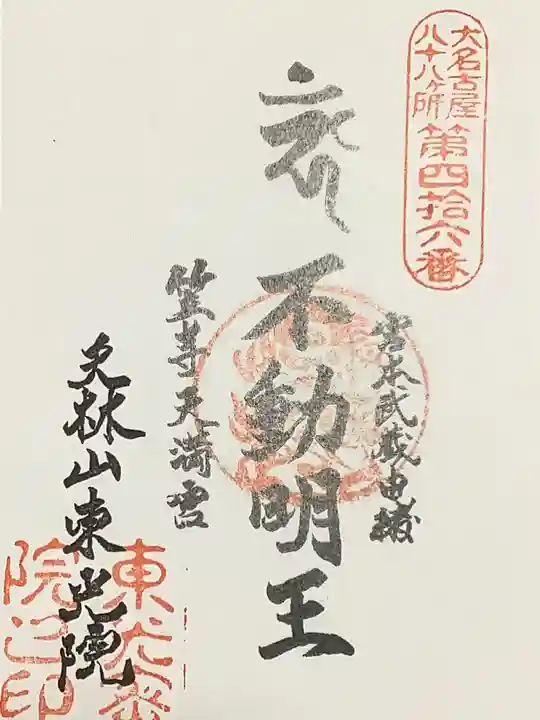 大名古屋
八十八ヶ所
第四拾六番
宮本武蔵由緒
不動明王
笠寺天満宮
天林山東光院
東光
院之印